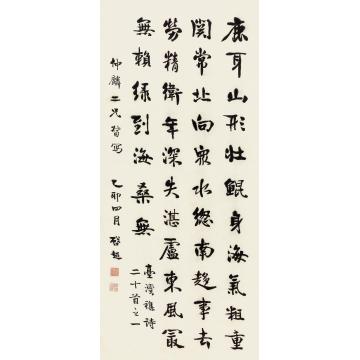 鹿耳山形壯鯤身海氣粗重
關常北向衆水總南趨事去
勞精衛年深失湛盧東風最
無賴綠到海桑無
臺灣雜詩
二十首之一
仲麟二兄督寫 乙卯四月 啟超